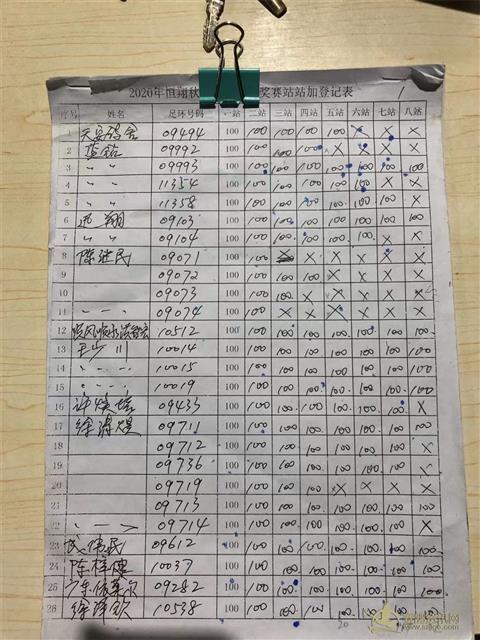 2020年恒翔秋 奖赛站站加登记表
序号 姓名 足环号码 一站 二站 三站 四站 五站 六站 七站 八站
1 天安鸽舍 09494 100 100 100 100 100 X X X
2 09992 100 100 100 100 X X X X
3 〃 〃 09993 100 100 100 100 100 100 100 100
4 〃 〃 11354 100 100 100 100 100 100 X X
5 〃 〃 11358 100 100 100 100 100 100 100 X
6 翔 09103 100 100 100 100 100 100 100 100
7 〃 〃 09104 100 100 100 100 100 100 X X
8 陈进民 09071 100 100 X X X X X
9 09072 100 100 100 100 X X X X
10 09073 100 100 100 X X X X X
11 〃 〃 09074 100 100 X X X X X X
12 10512 100 100 100 100 100 100 100 100
13 王少川 10014 100 100 100 100 100 100 100 100
14 〃 〃 10015 100 100 100 100 100 100 100 100
15 〃 〃 10019 100 100 100 100 100 100 100 100
16 09433 100 100 100 100 100 100 100 X
17 徐 09711 100 100 100 100 100 100 100 100
18 09712 100 100 100 100 100 100 100 X
19 09736 100 100 100 100 100 100 100 100
20 09719 100 100 100 100 X X X X
21 09713 100 100 100 100 100 100 100 100
22 09714 100 100 100 100 100 100 100 X
23 伟民 09612 100 100 100 100 100 100 100 100
24 陈 10037 100 100 100 100 100 100 100 100
25 09282 100 100 100 100 100 100 100 100
26 徐 钦 10538 100 100 100 100 100 100 100 100
20